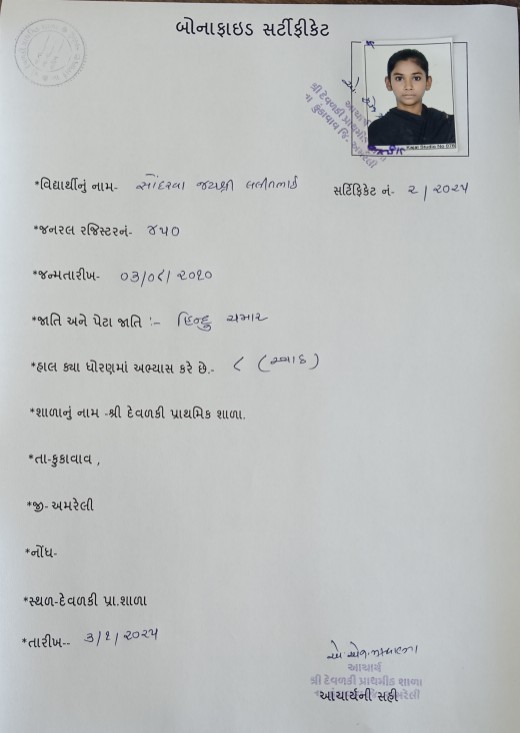 બોનાફાઇડ સર્ટીફીકેટ
શ્રી દેવળકી પ્રાથમિક
તા કુંકાવાવ જિ. અમરેલી
*વિદ્યાર્થીનું નામ- સોંદરવા જયશ્રી લલીતભાઈ
સર્ટિફિકેટ નં- ૨/૨૦૨૫
*જનરલ રજિસ્ટરનં- ૪૫૦
*જન્મતારીખ- ૦૩/૦૮/૨૦૧૦
*જાતિ અને પેટા જાતિ :- હિન્દુ ચમાર
*હાલ ક્યા ધોરણમાં અભ્યાસ કરે છે.- ૮ (આઠ)
*શાળાનું નામ -શ્રી દેવળકી પ્રાથમિક શાળા.
*તા-કુકાવાવ ,
*જી- અમરેલી
*નોંધ-
*સ્થળ-દેવળકી પ્રા.શાળા
*તારીખ-- ૩/૧/૨૦૨૫
આચાર્ય
શ્રી દેવળકી પ્રાથમીક શાળા
આચાર્યની સહી